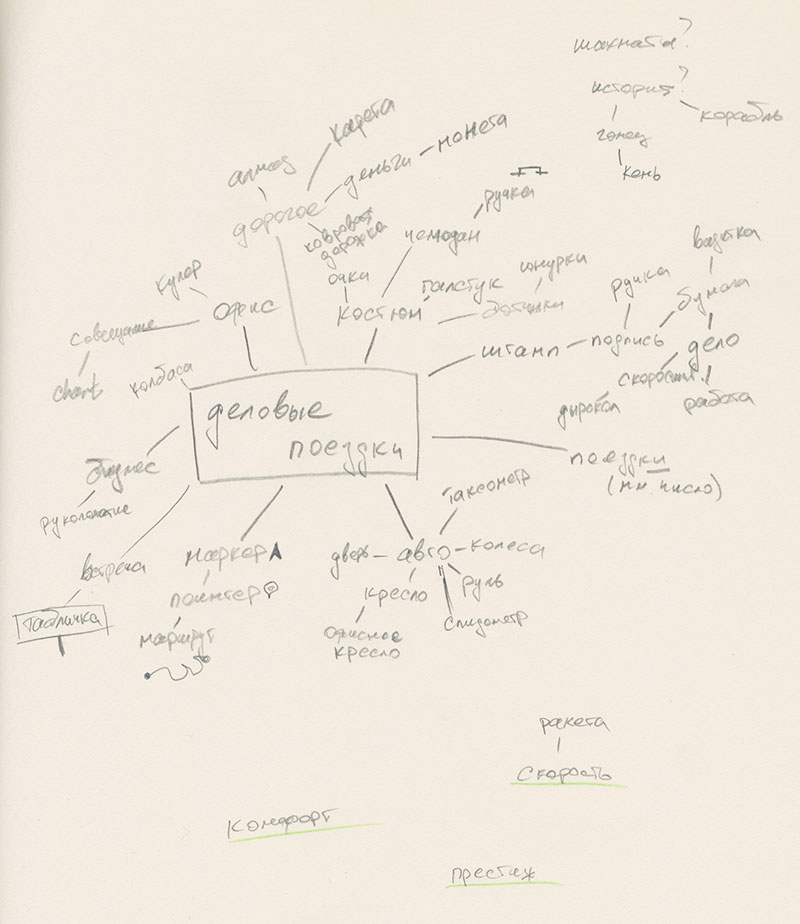 шахматы?
история?
корабль
гонец
конь
карета
алмаз
деньги
монета
дорогое
ковровая
дорожка
чемодан
ручка
кулер
офис
совещание
chart
колбаса
очки
костюм
галстук
ботинки
шнурки
штамп
подпись
ручка
бумага
взятка
дело
скоросш.
дырокол
работа
деловые
поездки
поездки
(мн. число)
бизнес
рукопожатие
встреча
табличка
маркер
поинтер
маршрут
дверь
авто
колеса
таксометр
руль
спидометр
кресло
офисное
кресло
ракета
скорость
комфорт
престиж